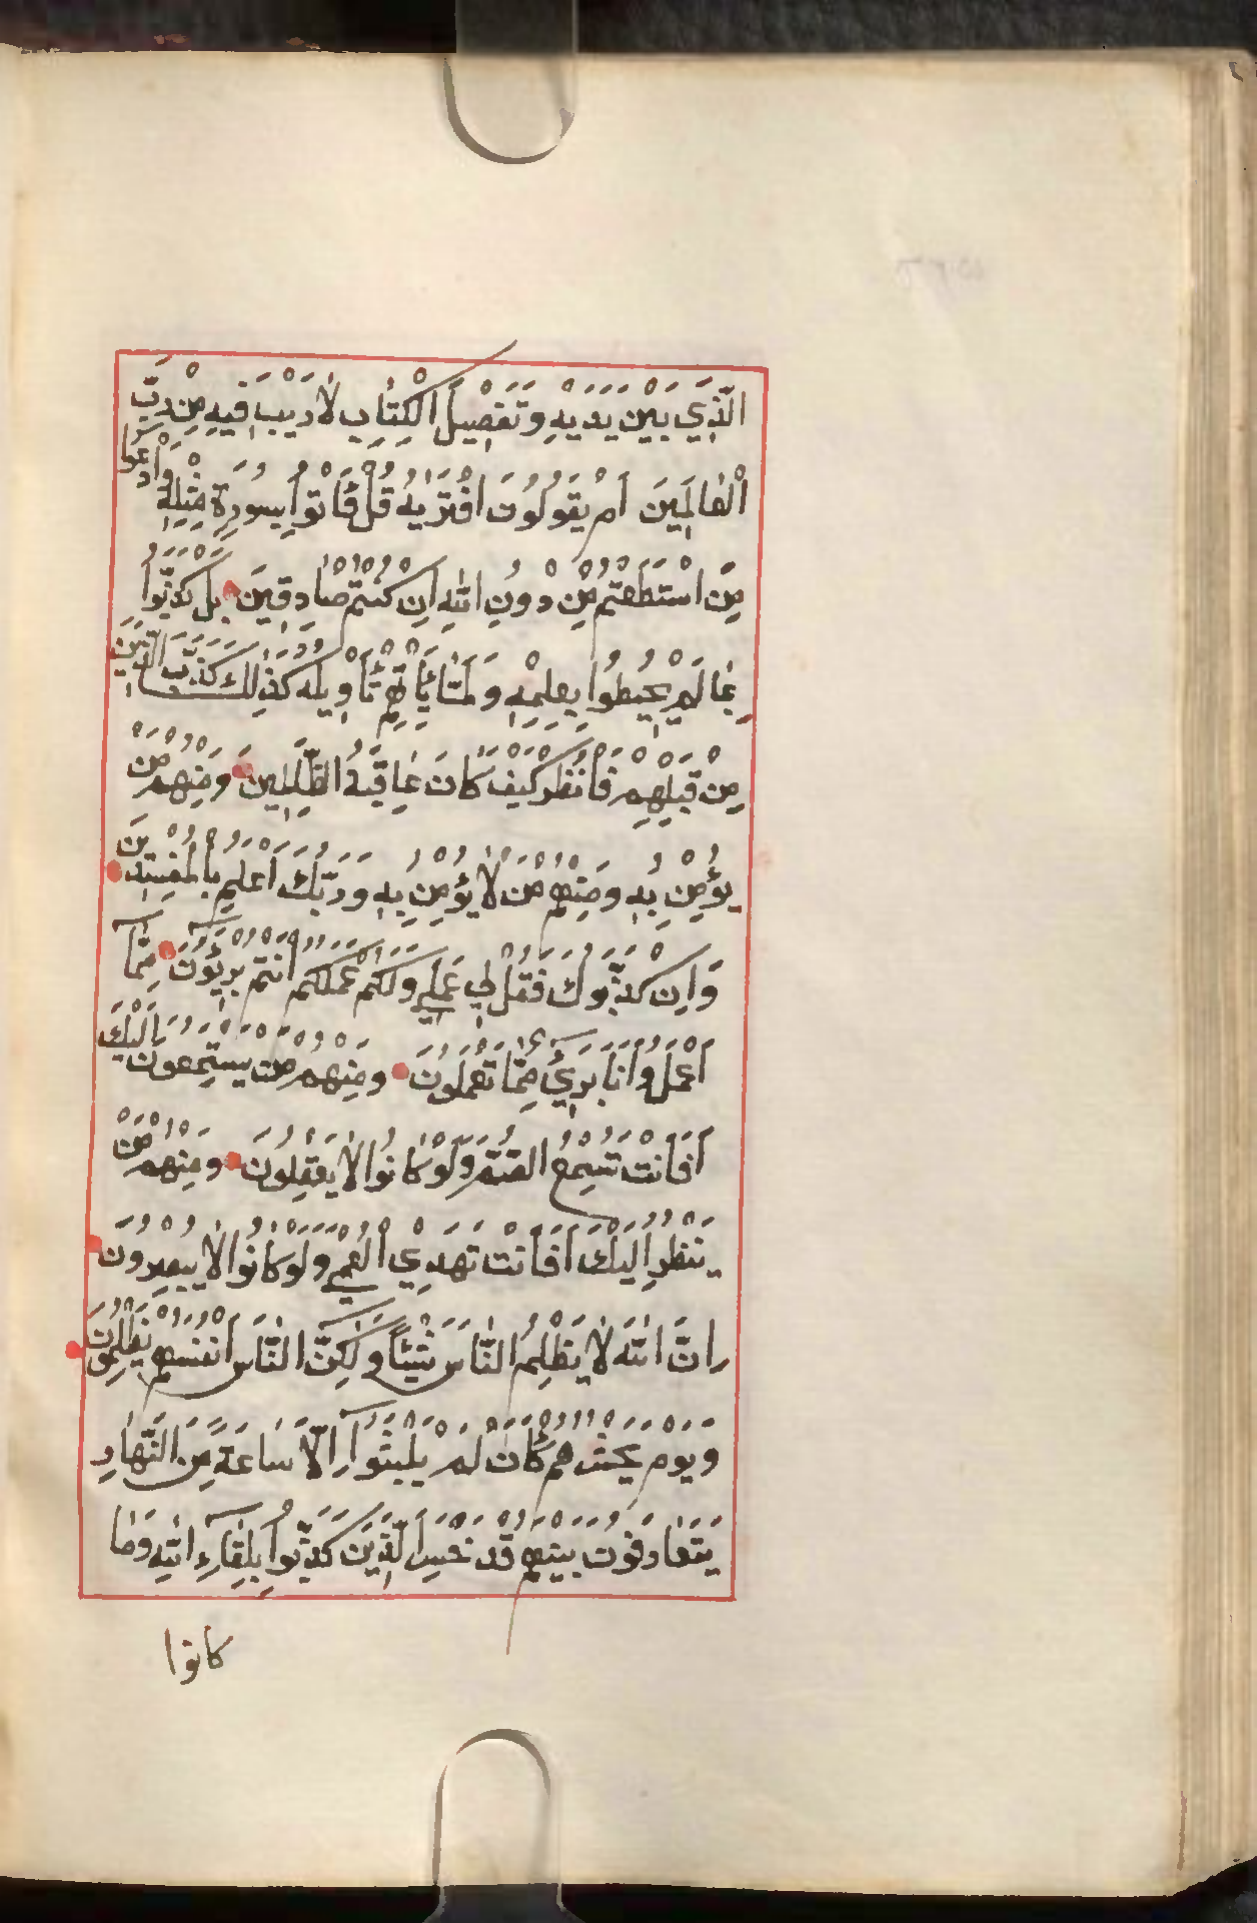 الَّذِي بَيْنَ يَدَيْهِ وَتَفْصِيلَ الْكِتَابِ لَا رَيْبَ فِيهِ مِنْ رَبِّ
الْعَالَمِينَ أَمْ يَقُولُونَ افْتَرَيٰهُ قُلْ فَأْتُوا بِسُورَةٍ مِثْلِهِ وَادْعُوا
مَنِ اسْتَطَعْتُمْ مِنْ دُونِ اللّٰهِ اِنْ كُنْتُمْ صَادِقِينَ بَلْ كَذَّبُوا
بِمَا لَمْ يُحِيطُوا بِعِلْمِهِ وَلَمَّا يَأْتِهِمْ تَأْوِيلُهُ كَذٰلِكَ كَذَّبَ الَّذِينَ
مِنْ قَبْلِهِمْ فَانْظُرْ كَيْفَ كَانَ عَاقِبَةُ الظّٰلِمِينَ وَمِنْهُمْ مَنْ
يُؤْمِنُ بِهِ وَمِنْهُمْ مَنْ لَا يُؤْمِنُ بِهِ وَرَبُّكَ اَعْلَمُ بِالْمُفْسِدِينَ
وَاِنْ كَذَّبُوكَ فَقُلْ لِي عَمَلِي وَلَكُمْ عَمَلُكُمْ اَنْتُمْ بَرِيؤُنَ مِمَّا
اَعْمَلُ وَاَنَا بَرِيءٌ مِمَّا تَعْمَلُونَ وَمِنْهُمْ مَنْ يَسْتَمِعُونَ اِلَيْكَ
اَفَاَنْتَ تُسْمِعُ الصُّمَّ وَلَوْ كَانُوا لَا يَعْقِلُونَ وَمِنْهُمْ مَنْ
يَنْظُرُ اِلَيْكَ اَفَاَنْتَ تَهْدِي الْعُمْيَ وَلَوْ كَانُوا لَا يُبْصِرُونَ
اِنَّ اللّٰهَ لَا يَظْلِمُ النَّاسَ شَيْئًا وَلٰكِنَّ النَّاسَ اَنْفُسَهُمْ يَظْلِمُونَ
وَيَوْمَ يَحْشُرُهُمْ كَاَنْ لَمْ يَلْبَثُوا اِلَّا سَاعَةً مِنَ النَّهَارِ
يَتَعَارَفُونَ بَيْنَهُمْ قَدْ خَسِرَ الَّذِينَ كَذَّبُوا بِلِقَاءِ اللّٰهِ وَمَا
كانوا